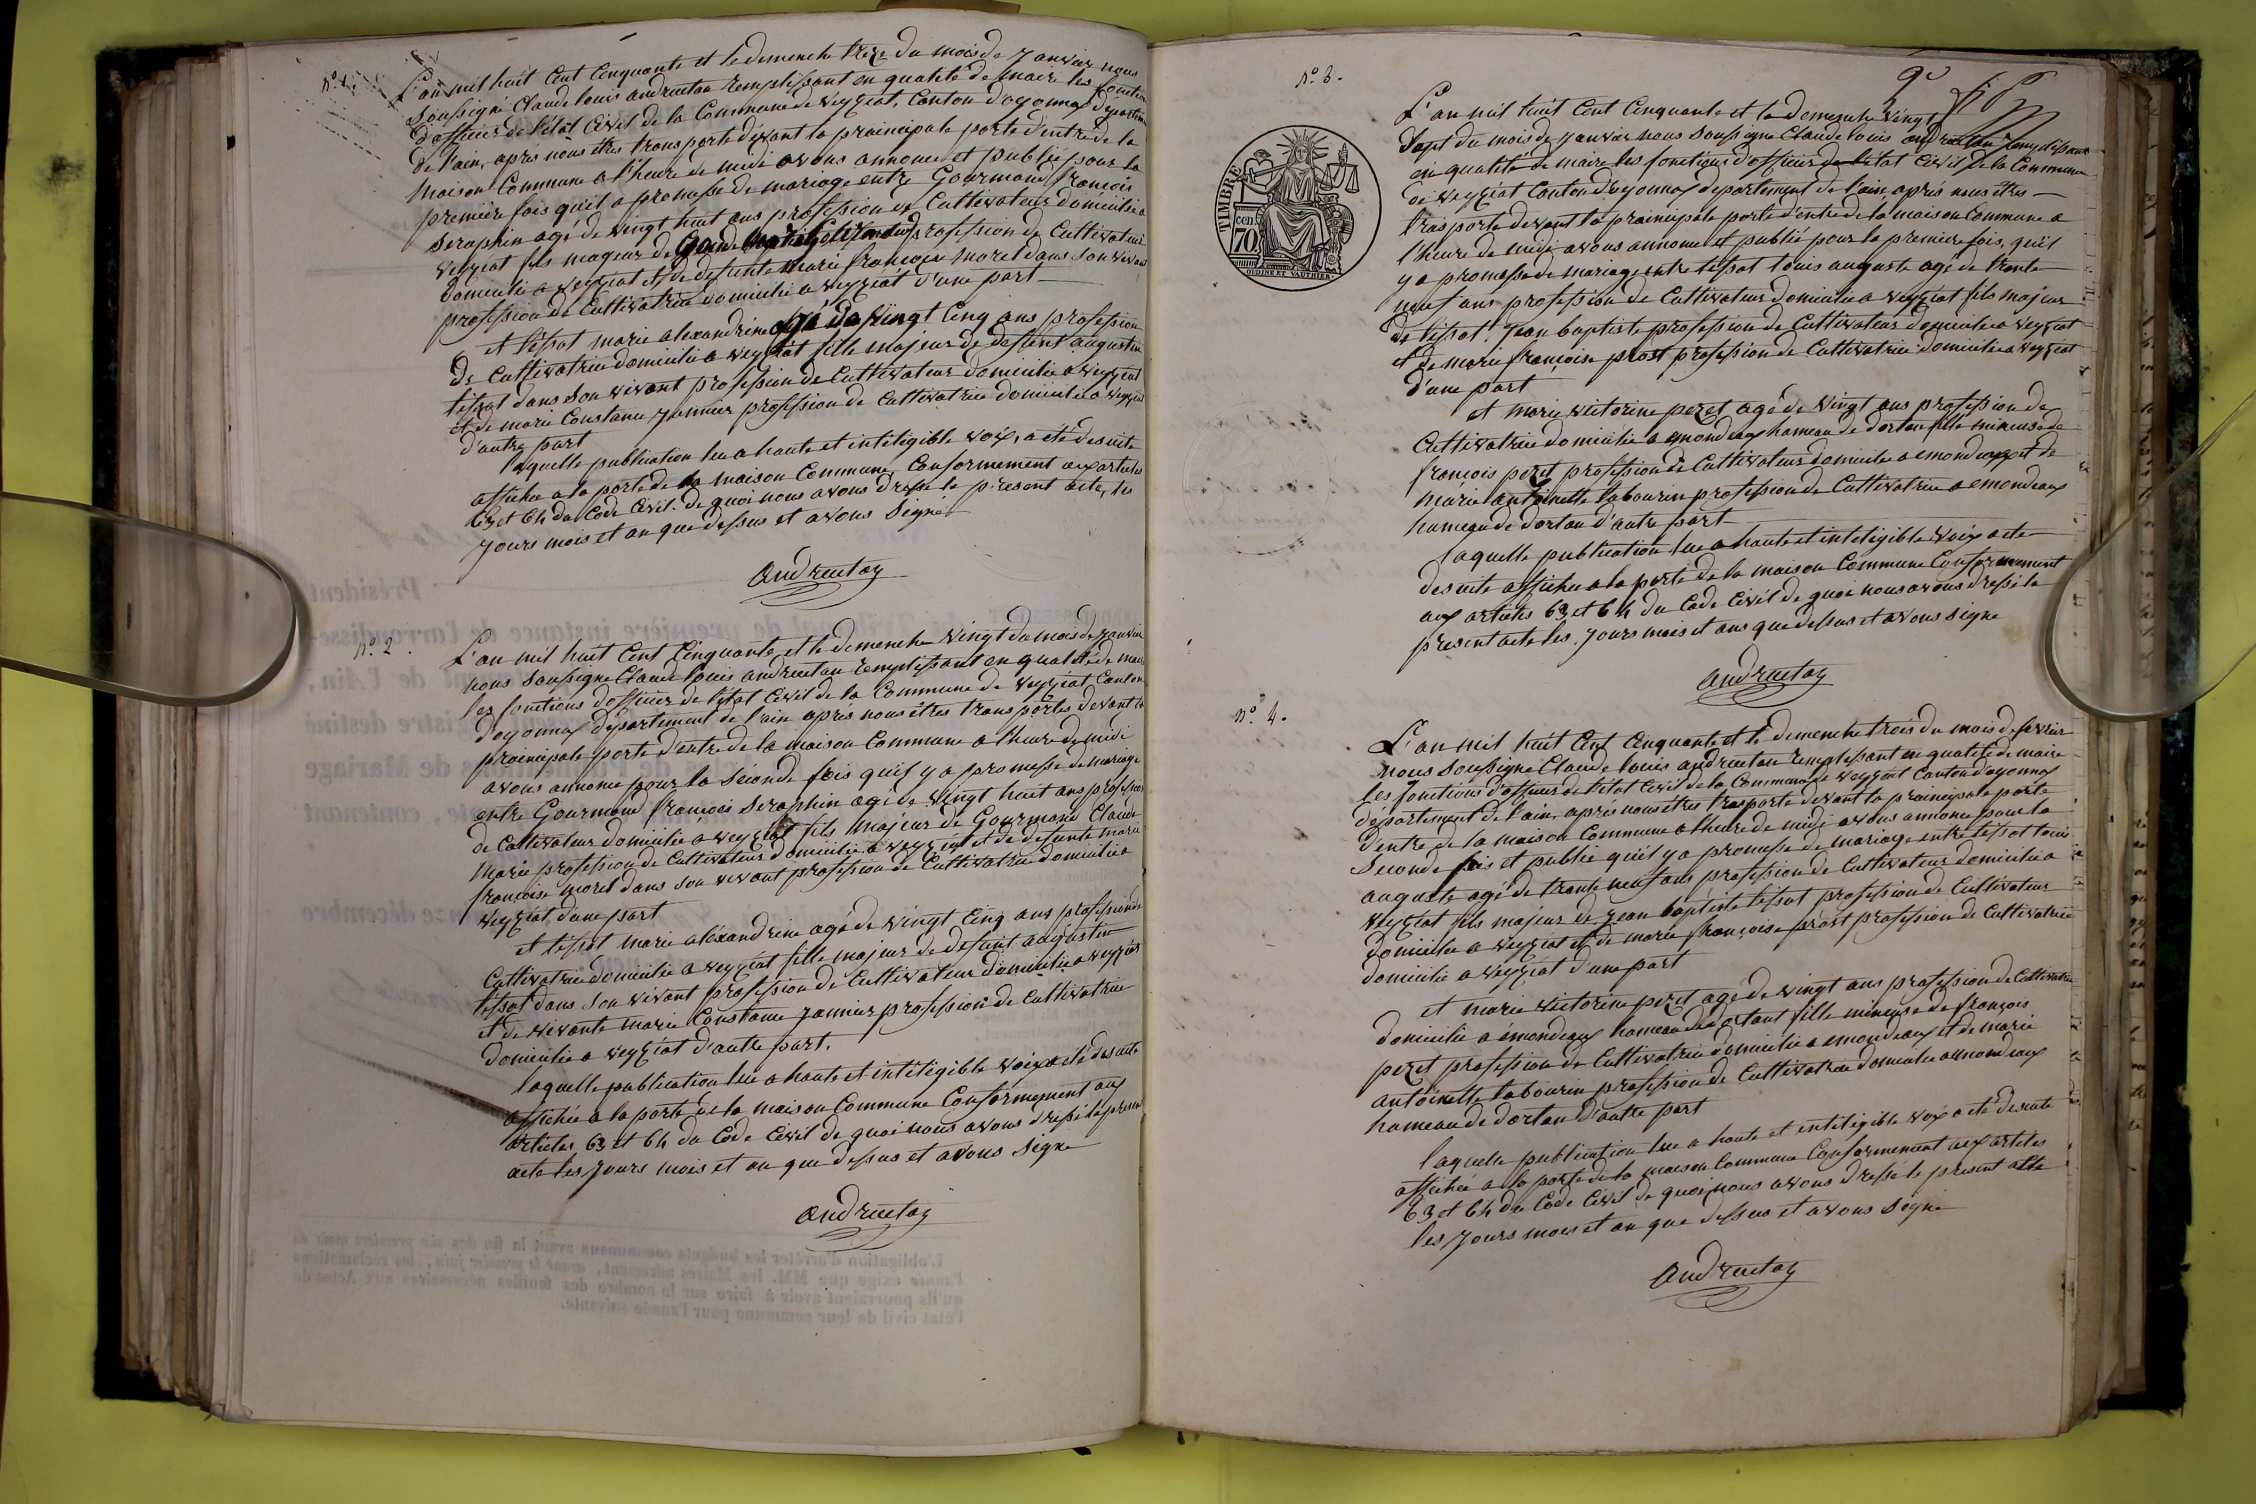 N° 1.
L'an mil huit Cent Cinquante et le demenche treze du mois de Janvier nous
Soussigné Claude louis andruetan remplissant en qualité de maire les fonction
d'officier de l'état Civil de la Commune de Veyziat, Canton d'oyonnax départem
de l'ain, aprés nous étres transporte dévant la prainicipale porte d'entre de la
Maison Commune a l'heure de midi avons annoncé et publié pour la
premiére fois quil a promesse de mariage entre Gourmand francois
Seraphin agé de vingt huit ans profession de Cultivateur domicilie a
Veyziat fils mageur de profession de Cultivateur
domicilie a Veyziat et de defunte Marie françoise Morel dans son vivant
profession de Cultivatrice domicilie a Veyziat d'une part
et tissot marie alexandrine agé de vingt Cinq ans profession
de Cultivatrice domicilie a Veyziat fille majeur de defunt augustin
tissot dans son vivant profession de Cultivateur domicilie a Veyziat
et de marie Constance Jannier profession de Cultivatrice domicilie a Veyziat
d'autre part
laquelle publication lue a haute et inteligible voix, a eté desuite
affichee a la porte de la maison Commune, Conformement aux articles
63 et 64 du Code Civil. de quoi nous avons dressé le present acte, les
jours mois et an que dessus et avons Signé
Andruetan
N° 2.
L'an mil huit Cent Cinquante et le demenche vingt du mois de Janvier
nous soussigne Claude louis andruetan remplissant en qualité de maire
les fonctions d'officier de l'état Civil de la Commune de Veyziat Canton
d'oyonnax département de l'ain aprés nous étres transportes devant la
prainicipale porte d'entre de la maison Commune a l'heure de midi
avons annonce pour la Séconde fois quil y a promesse de mariage
entre Gourmand françois Seraphin agé de vingt huit ans profession
de Cultivateur domicilie a Veyziat fils Majeur de Gourmand Claude
Marie profession de Cultivateur domicilie a Veyziat et de defunte marie
françoise morel dans son vivant profession de Cultivatrice domicilie a
Veyziat d'une part
et tissot marie aléxandrine agé de vingt Cinq ans profession de
Cultivatrice domicilie a Veyziat fille majeur de defunt augustin
tissot dans son vivant profession de Cultivateur domicilie a veyziat
et de vivante marie Constance Jannier profession de Cultivatrice
domicilie a Veyziat d'autre part.
laquelle publication lue a haute et intéligible voix a eté desuite
affichée a la porte de la maison Commune Conformement aux
articles 63 et 64 du Code Civil de quoi nous avons dressé le presen
acte les jours mois et an que dessus et avons Signe
Andruetan
N° 3.
2e
TIMBRE
cen
70
OUDINE ET VAUTHIER
L'an mil huit Cent Cinquante et le demenche vingt
Sept du mois de janvier nous Soussigne Claude louis andruetan remplissant
en qualité de maire les fonctions d'officier de l'état Civil de la Commune
de Veyziat Canton d'oyonnax departement de l'ain, aprés nous étres
trasporte devant la prainicipale porte d'entre de la maison Commune a
l'heure de midi avons annonce et publié pour la premiere fois, quil
y a promesse de mariage entre tissot louis auguste agé de trente
neuf ans profession de Cultivateur domicilie a Veyziat fils majeur
de tissot Jean baptiste profession de Cultivateur domicilie a Veyziat
et de marie françoise prost profession de Cultivatrice domicilie a veyziat
d'une part
et marie victorine pezet agé de vingt ans profession de
Cultivatrice domicilie a emondeaux hameau de dortan fille mineuse de
françois pezet profession de Cultivateur domicilie a emondeaux et de
Marie antoinette tabourin profession de Cultivatrice a emondeaux
hameau de dortan d'autre part
laquelle publication lue a haute et inteligible voix a ete
desuite affichee a la porte de la maison Commune Conformement
aux articles 63 et 64 du Code Civil de quoi nous avons dressé le
present acte les jours mois et ans que dessus et avons Signe
Andruetan
N° 4.
L'an mil huit Cent Cinquante et le demenche trois du mois de fevrier
nous Soussigne Claude louis andruetan remplissant en qualité de maire
les fonctions d'officier de l'état Civil de la Commune de Veyziat Canton d'oyonnax
département de l'ain, aprés nous étres trasporte devant la prainicipale porte
d'entre de la maison Commune a l'heure de midi avons annonce pour la
Seconde fois et publie quil y a promesse de mariage entre tissot louis
auguste agé de trente neuf ans profession de Cultivateur domicilie a
Veyziat fils majeur de Jean baptiste tissot profession de Cultivateur
domicilie a Veyziat et de marie françoise prost profession de Cultivatrice
domicilie a Veyziat d'une part
et marie victorine pezet agé de vingt ans profession de Cultivatrice
domicilie a émondeaux hameau de dortant fille mineuse de françois
pezet profession de Cultivatrice domicilie a emondeaux et de marie
antoinette tabourin profession de Cultivatrice domicilie a emondeaux
hameau de dortan d'autre part
laquelle publication lue a haute et inteligible voix a eté desuite
affichée a la porte de la maison Commune Conformement aux articles
63 et 64 du Code Civil de quoi nous avons dressé le present acte
les jours mois et an que dessus et avons Signe
Andruetan